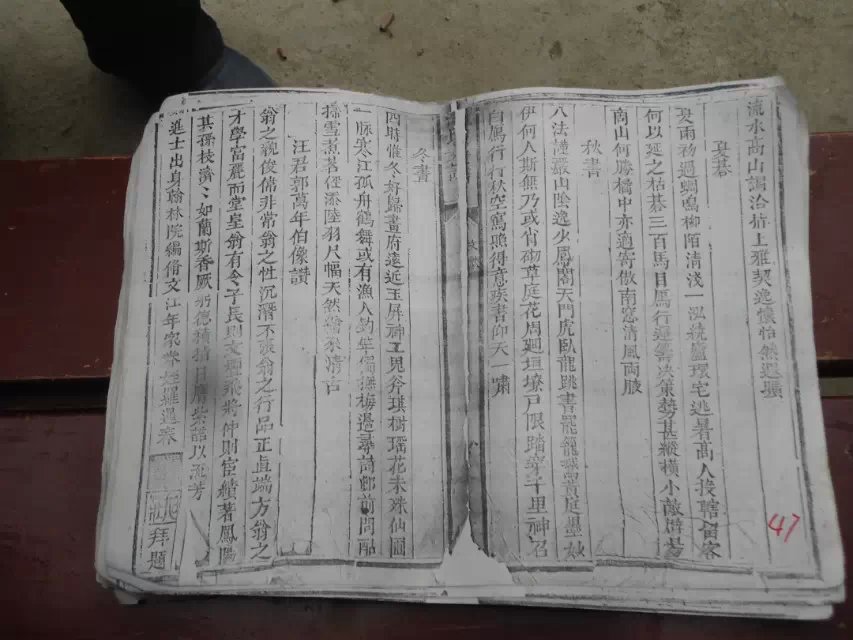 流水高山調洽指上雅契逸懷怡然遐暢
夏棊
夏雨初過蜩鳴柳陌清淺一泓統廬環宅逃暑高人投轄留客
何以延之枯棊三百馬目馬行遲雲决策勢甚縱橫小敵
南山何勝橘中亦適寄傲南窓清風両腋
秋書
八法謹嚴山陰逸少鳳閣天門虎臥龍跳書罷籠鵞黃庭墨妙
伊何人斯無乃或肖砌草庭花周廻垣墩戸限踏穿千里神召
自寫行行秋空寫照得意疾書仰天一嘯
冬畵
四時惟冬好歸畫府遠近玉屏神工鬼斧琪樹瑶花未洙仙圃
一脉寒江孤舟鶴舞或有漁人釣竿傴探梅邊尋南郵前問酤
掃雪煮茗徑添陸羽尺幅天然繪來清古
汪君郭萬年伯像讃
翁之貌俊偹非常翁之性沉潛不張翁之行品正直端方翁之
才學富麗而堂皇翁有令子長則文翀將仲則宦績著鳳陽
其孫枝濟濟如蘭斯香厥德積目膺紫誥以流芳
進士出身翰林院編脩文江年家眷姪
拜題
47